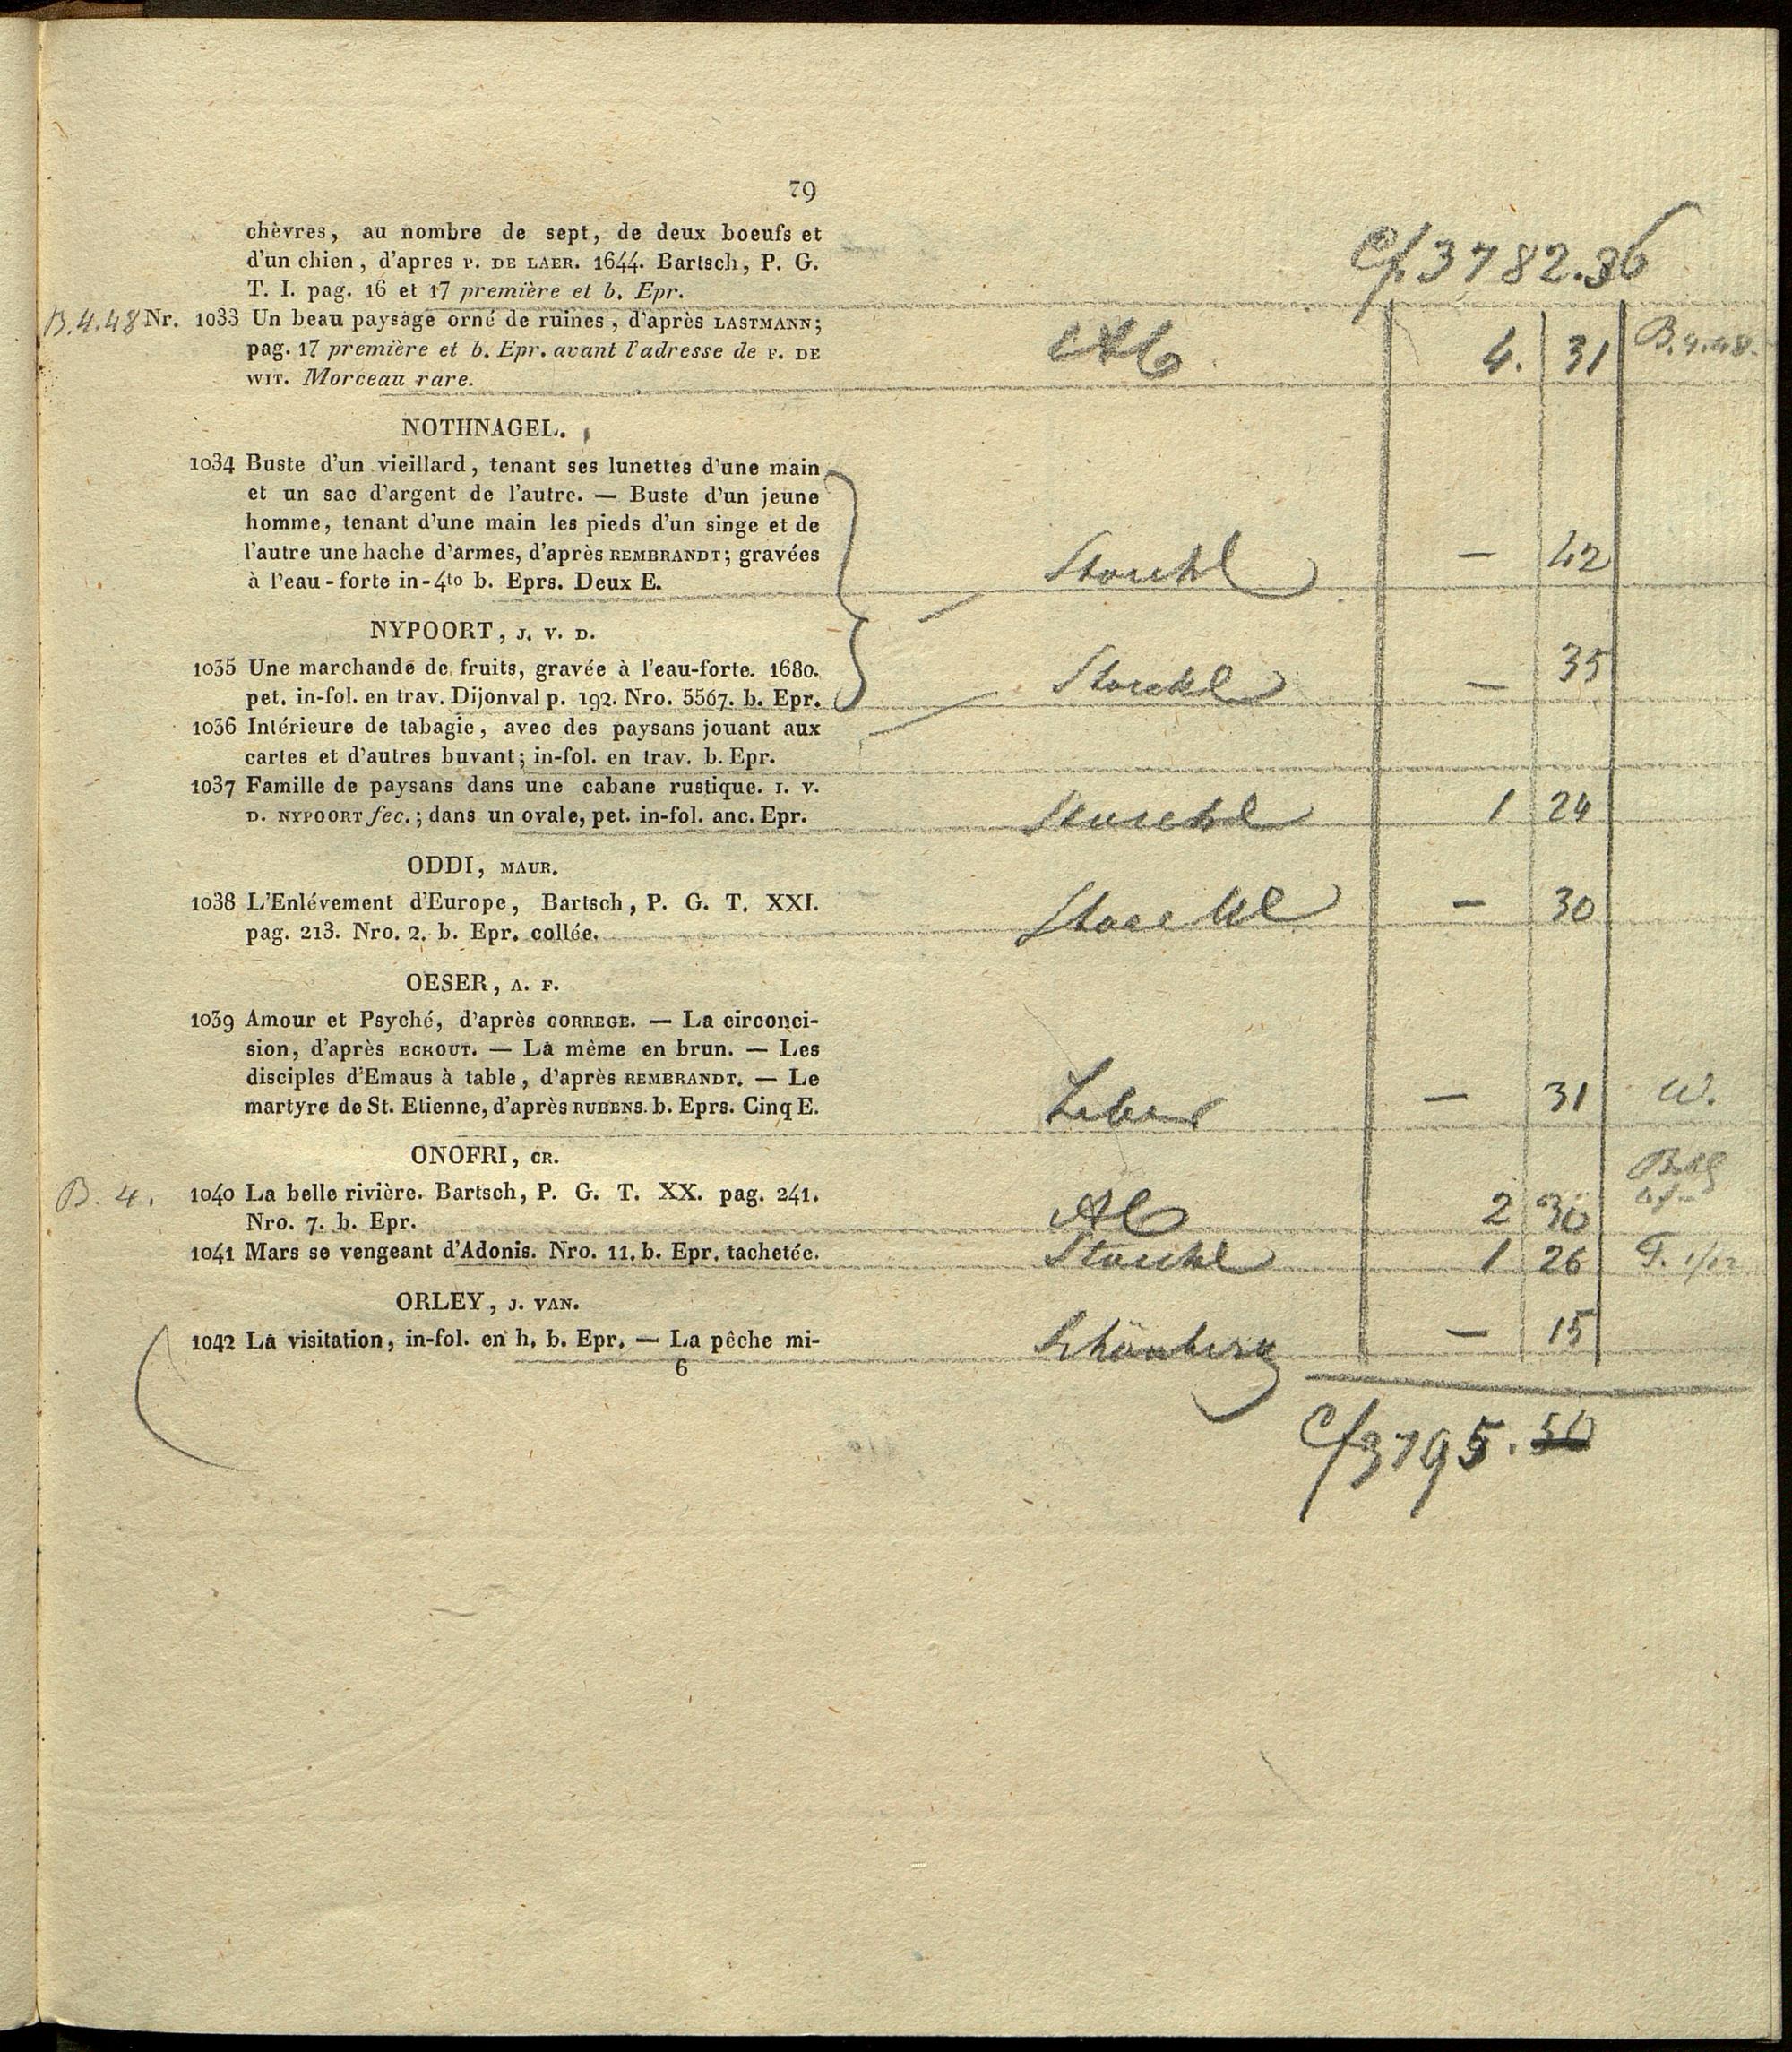 79
chèvres, au nombre de sept, de deux boeufs et
d'un chien, d'apres P. DE LAER. 1644. Bartsch, P. G.
T. I. pag. 16 et 17 première et b. Epr.
3782.36
B.4.48 Nr. 1033 Un beau paysage orné de ruines, d'après LASTMANN;
pag. 17 première et b. Epr. avant l'adresse de F. DE
WIT. Morceau rare.
4. 31 B.4.48.
NOTHNAGEL.
1034 Buste d'un vieillard, tenant ses lunettes d'une main
et un sac d'argent de l'autre. — Buste d'un jeune
homme, tenant d'une main les pieds d'un singe et de
l'autre une hache d'armes, d'après REMBRANDT; gravées
à l'eau-forte in-4to b. Eprs. Deux E.
Storckl — 42
NYPOORT, J. V. D.
1035 Une marchande de fruits, gravée à l'eau-forte. 1680.
pet. in-fol. en trav. Dijonval p. 192. Nro. 5567. b. Epr.
Storckl — 35
1036 Intérieure de tabagie, avec des paysans jouant aux
cartes et d'autres buvant; in-fol. en trav. b. Epr.
1037 Famille de paysans dans une cabane rustique. I. V.
D. NYPOORT fec.; dans un ovale, pet. in-fol. anc. Epr.
Storckl 1 24
ODDI, MAUR.
1038 L'Enlévement d'Europe, Bartsch, P. G. T. XXI.
pag. 213. Nro. 2. b. Epr. collée.
Storckl — 30
OESER, A. F.
1039 Amour et Psyché, d'après CORREGE. — La circonci-
sion, d'après ECKOUT. — La même en brun. — Les
disciples d'Emaus à table, d'après REMBRANDT. — Le
martyre de St. Etienne, d'après RUBENS. b. Eprs. Cinq E.
— 31 W.
ONOFRI, CR.
B. 4. 1040 La belle rivière. Bartsch, P. G. T. XX. pag. 241.
Nro. 7. b. Epr.
2 30
1041 Mars se vengeant d'Adonis. Nro. 11. b. Epr. tachetée.
Storckl 1 26
ORLEY, J. VAN.
1042 La visitation, in-fol. en h. b. Epr. — La pêche mi-
Schönberg — 15
6
3795.50